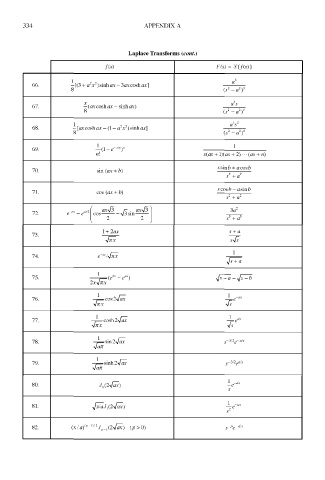 334 APPENDIX A
Laplace Transforms (cont.)
f(x) F(s) = ℒ[f(x)]
66. 1/8 [(3 + a²x²) sinh ax − 3ax cosh ax] a⁵/(s² − a²)³
67. x/8 (ax cosh ax − sinh ax) a³s/(s² − a²)³
68. 1/8 [ax cosh ax − (1 − a²x²) sinh ax] a³s²/(s² − a²)³
69. 1/n! (1 − e^(−x/a))ⁿ 1/(s(as + 1)(as + 2)⋯(as + n))
70. sin (ax + b) (s sin b + a cos b)/(s² + a²)
71. cos (ax + b) (s cos b − a sin b)/(s² + a²)
72. e^(−ax) − e^(ax/2) (cos (ax√3/2) − √3 sin (ax√3/2)) 3a²/(s³ + a³)
73. (1 + 2ax)/√(πx) (s + a)/(s√s)
74. e^(−ax)/√(πx) 1/√(s + a)
75. 1/(2x√(πx)) (e^(bx) − e^(ax)) √(s − a) − √(s − b)
76. 1/√(πx) cos 2√(ax) 1/√s e^(−a/s)
77. 1/√(πx) cosh 2√(ax) 1/√s e^(a/s)
78. 1/√(aπ) sin 2√(ax) s^(−3/2) e^(−a/s)
79. 1/√(aπ) sinh 2√(ax) s^(−3/2) e^(a/s)
80. J₀(2√(ax)) 1/s e^(−a/s)
81. √(x/a) J₁(2√(ax)) 1/s² e^(−a/s)
82. (x/a)^((p−1)/2) J_(p−1)(2√(ax)) (p > 0) s^(−p) e^(−a/s)